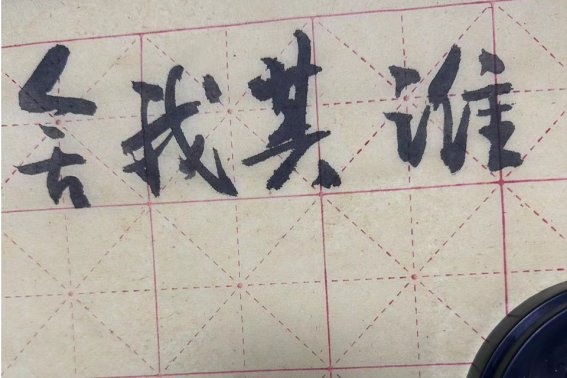 舍我其谁